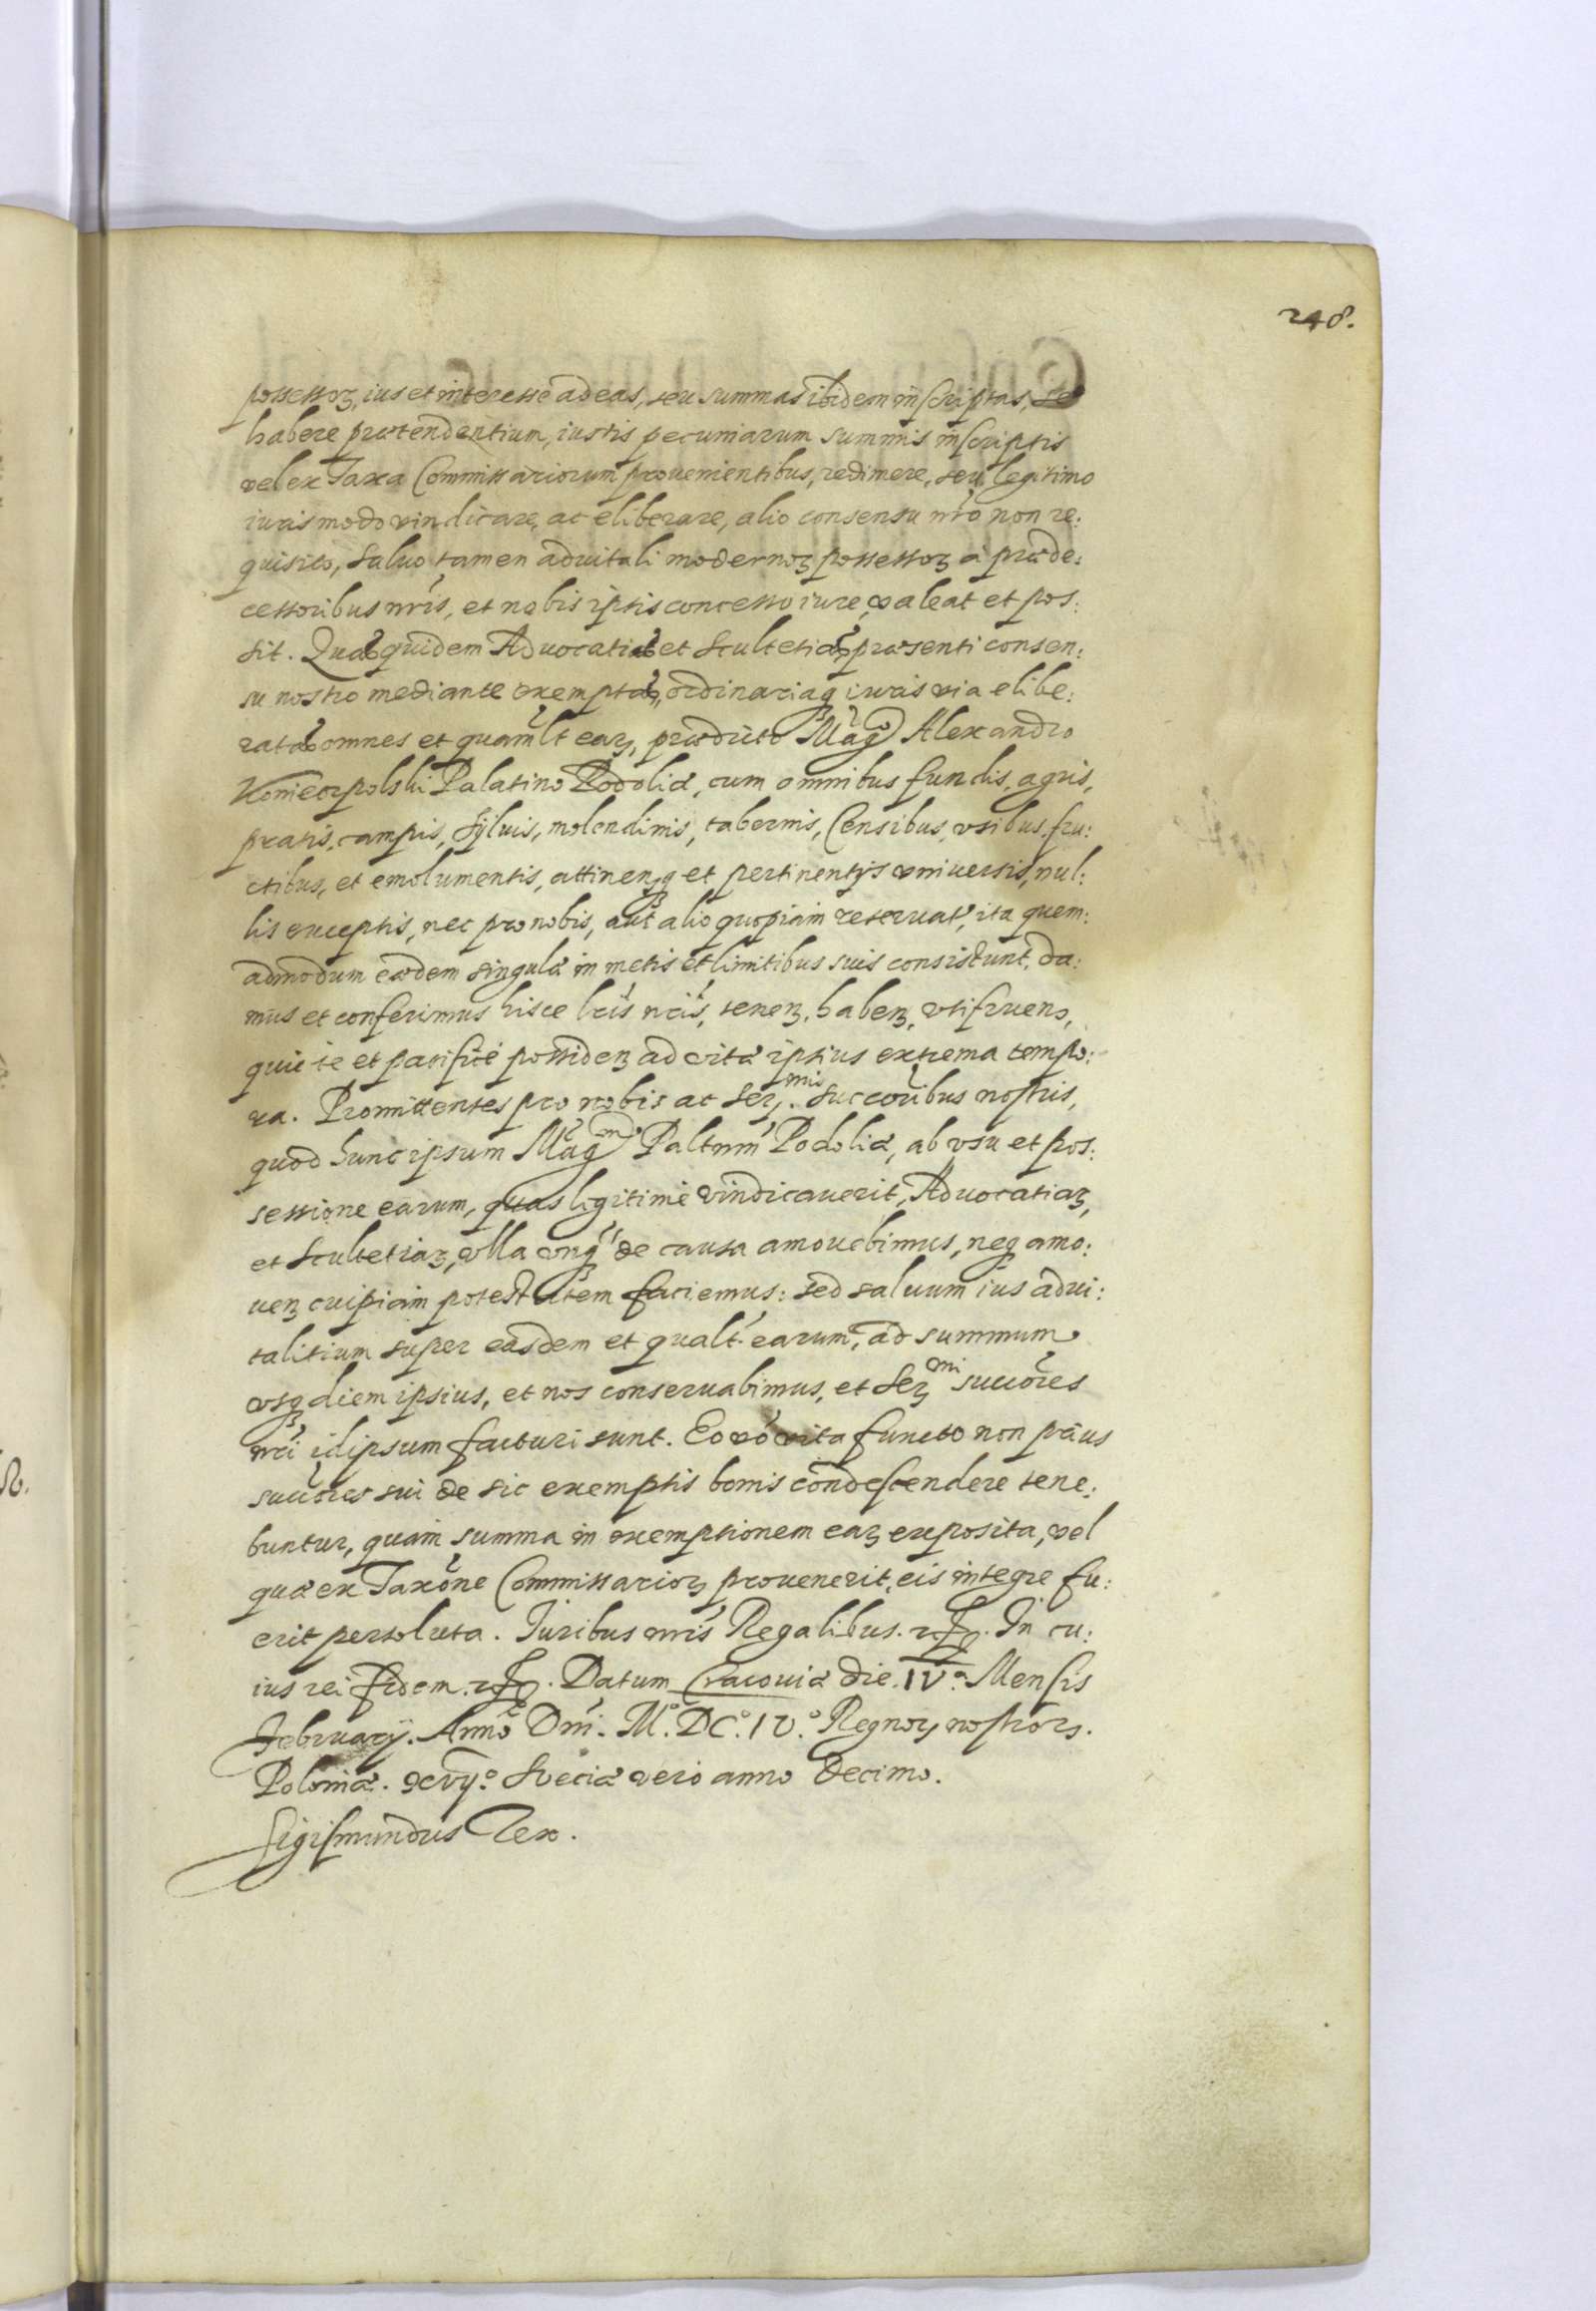 248.
possessoꝝ, ius et interesse ad eas, seu summas ibidem inscriptas, se
habere prætendentium, iustis pecuniarum summis inscriptis
vel ex Taxa Commissariorum prouenientibus, redimere, seu legitimo
iuris modo vindicare, ac eliberare, alio consensu nrõ non re:
quisito, saluo tamen aduitali modernoꝝ possessoꝝ a præde:
cessoribus nrĩs, et nobis ipsis concesso iure, valeat et pos:
sit. Quas quidem Aduocatias et Scultetias, præsenti consen:
su nostro mediante exemptas, ordinariaqꝫ iuris via elibe:
ratas omnes et quamlt eaꝝ, prædicto Magco Alexandro
Koniecpolski Palatino Podoliæ, cum omnibus fundis, agris,
pratis, campis, syluis, molendinis, tabernis, Censibus, vsibus, fru:
ctibus, et emolumentis, attinenꝫqꝫ et pertinentijs vniuersis, nul:
lis exceptis, nec pro nobis, aut alio quopiam reseruat', ita quem:
admodum eædem singulæ in metis et limitibus suis consistunt, da:
mus et conferimus hisce lrĩs nrĩs, tenenꝫ, habenꝫ, vtifruenꝫ,
quiete et pacifice possidenꝫ ad vitæ ipsius extrema tempo:
ra. Promittentes pro nobis ac Ser. mis Succoribus nostris,
quod hunc ipsum Magcum Paltnm Podoliæ, ab vsu et pos:
sessione earum, quas legitime vindicauerit, Aduocatiaꝝ,
et Scultetiaꝝ, vlla vnqꝫ de causa amouebimus, neqꝫ amo:
uenꝫ cuipiam potestatem faciemus: sed saluum ius adui:
talitium super easdem et qualt. earum, ad summum
vsqꝫ diem ipsius, et nos conseruabimus, et Ser mi succores
nrĩ idipsum facturi sunt. Eo vo vita functo non prius
succores sui de sic exemptis bonis condescendere tene:
buntur, quam summa in exemptionem eaꝝ exposita, vel
quæ ex Taxone Commissarioꝝ prouenerit, eis integre fu:
erit persoluta. Juribus nrĩs Regalibus. etc. In cu:
ius rei fidem. etc. Datum Cracouiæ die. IV.a Mensis
February. Anno Dni. Mo. DCo. IV.o Regnoꝝ nostroꝝ.
Poloniæ. xvij.o Sueciæ vero anno decimo.
Sigismundus Rex.